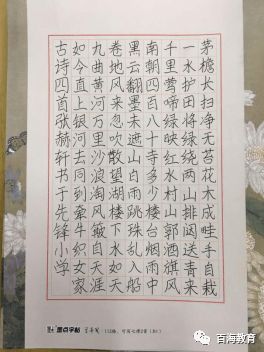 茅檐长扫净无苔花木成畦手自栽
一水护田将绿绕两山排闼送青来
千里莺啼绿映红水村山郭酒旗风
南朝四百八十寺多少楼台烟雨中
黑云翻墨未遮山白雨跳珠乱入船
卷地风来忽吹散望湖楼下水如天
九曲黄河万里沙浪淘风簸自天涯
如今直上银河去同到牵牛织女家
古诗四首张赫轩书于先锋小学
墨点字帖
百海教育